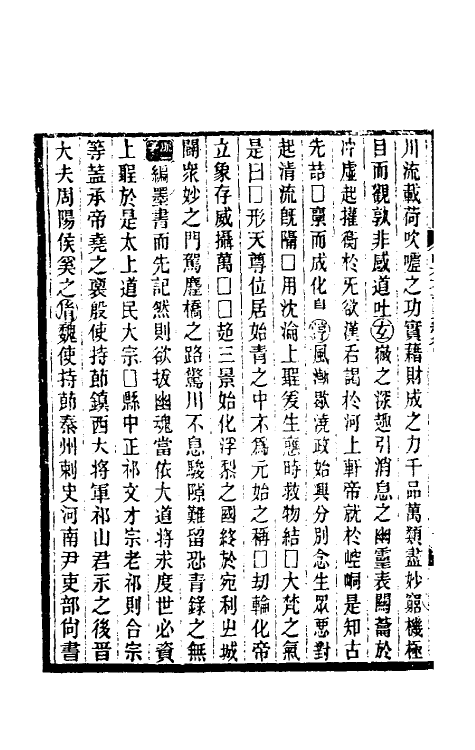 川流載荷吹噓之功實藉財成之力千品萬類盡妙窮機極
目而觀孰非感道吐玄微之深趣引消息之幽靈表闕葢於
冲虛起權衡於死欲漢君謁於河上軒帝就於崆峒是知古
先喆囗稟而成化自淳風漸歇澆政始興分別念生眾惡對
起清流旣隔囗用沈淪上聖爰生愍時救物結囗大梵之氣
是曰囗形天尊位居始青之中亦爲元始之稱囗劫輪化帝
立象存威攝萬囗囗超三景始化浮梨之國終於宛利虫城
闢衆妙之門駕塵橋之路驚川不息駿隙難留恐青錄之無
編墨書而先記然則欲拔幽魂當依大道將求度世必資
上聖於是太上道民大宗囗縣中正祁文才宗老祁則合宗
等葢承帝堯之裔殷使持節鎮西大將軍祁山君示之後晉
大夫周陽侯奚之胄魏使持節秦州刺史河南尹吏部尙書